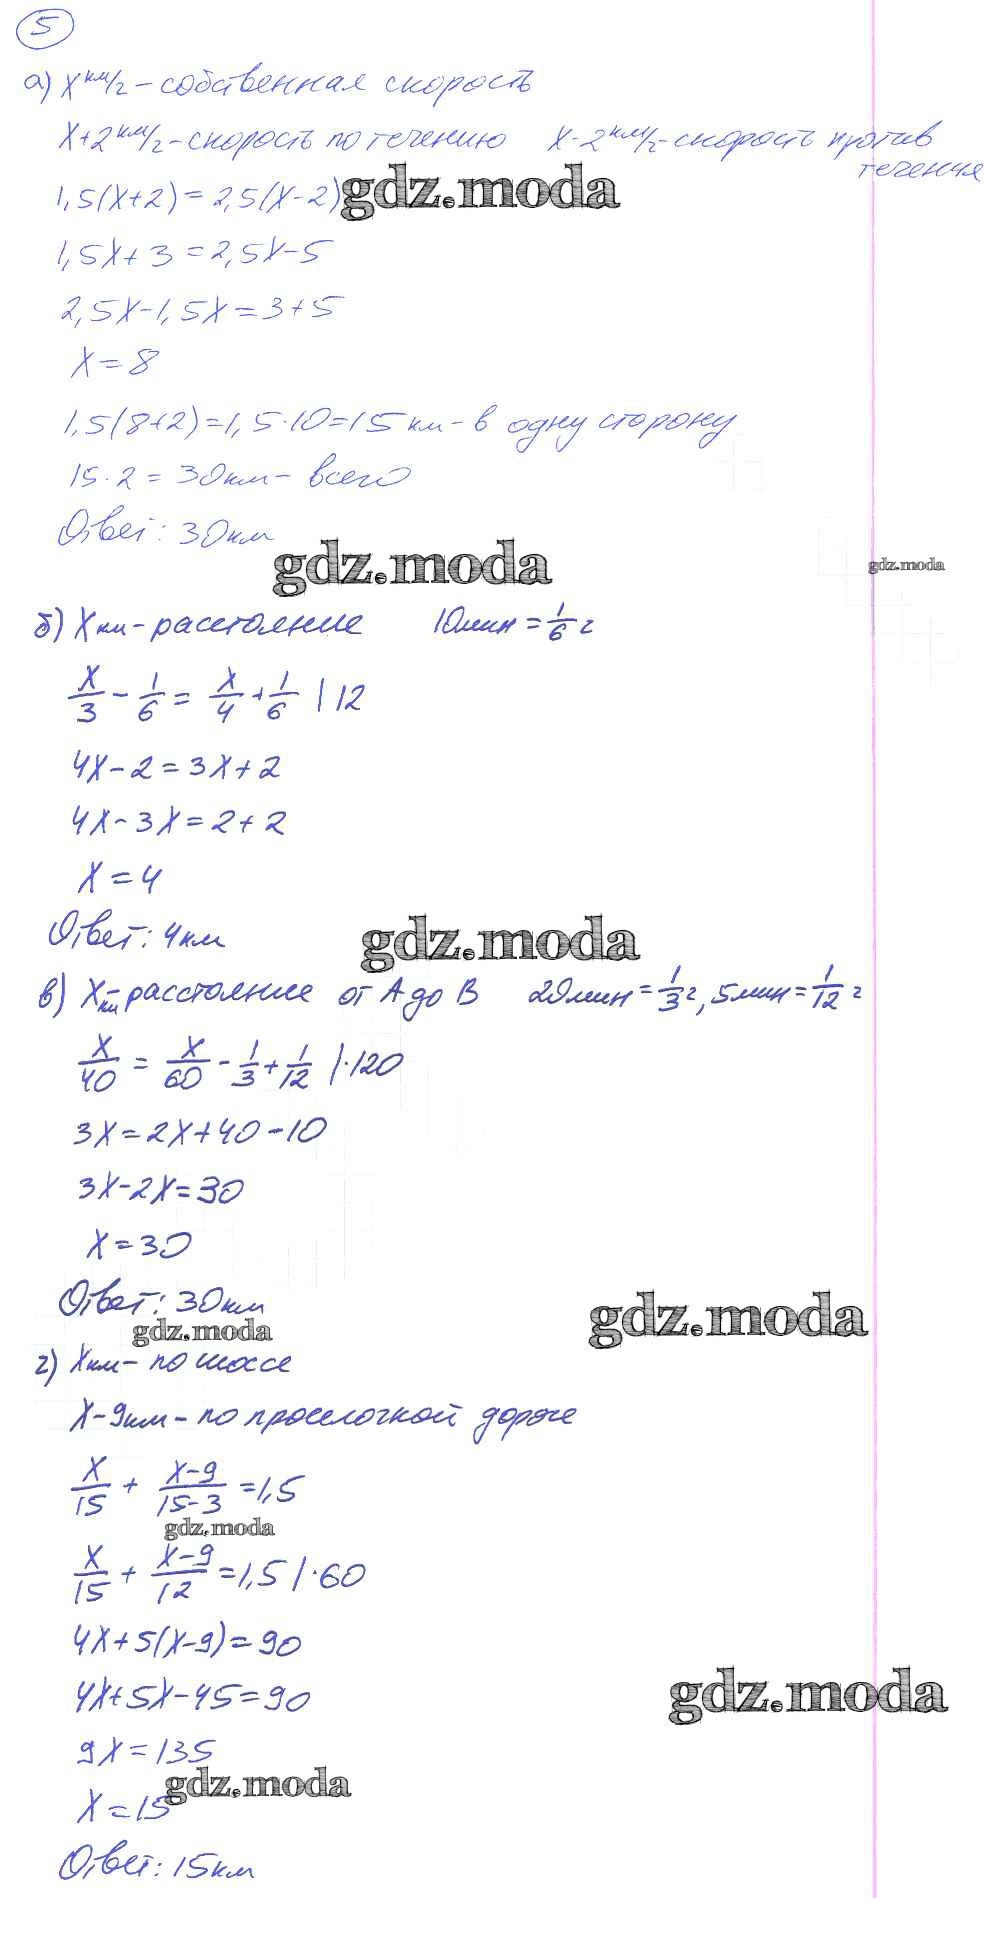 5
а) x км/г – собственная скорость
x+2 км/г – скорость по течению x-2 км/г – скорость против течения
1,5(x+2)=2,5(x-2) gdz.moda
1,5x+3=2,5x-5
2,5x-1,5x=3+5
x=8
1,5(8+2)=1,5·10=15 км – в одну сторону
15·2=30 км – всего
Ответ: 30 км
gdz.moda
gdz.moda
б) x км – расстояние 10 мин = 1/6 г
x/3 - 1/6 = x/4 + 1/6 | 12
4x-2=3x+2
4x-3x=2+2
x=4
Ответ: 4 км gdz.moda
в) x км – расстояние от А до В 20 мин = 1/3 г, 5 мин = 1/12 г
x/40 = x/60 - 1/3 + 1/12 |·120
3x=2x+40-10
3x-2x=30
x=30
Ответ: 30 км
gdz.moda
gdz.moda
г) x км – по шоссе
x-9 км – по проселочной дороге
x/15 + (x-9)/(15-3) = 1,5
gdz.moda
x/15 + (x-9)/12 = 1,5 |·60
4x+5(x-9)=90
4x+5x-45=90
gdz.moda
9x=135
gdz.moda
x=15
Ответ: 15 км